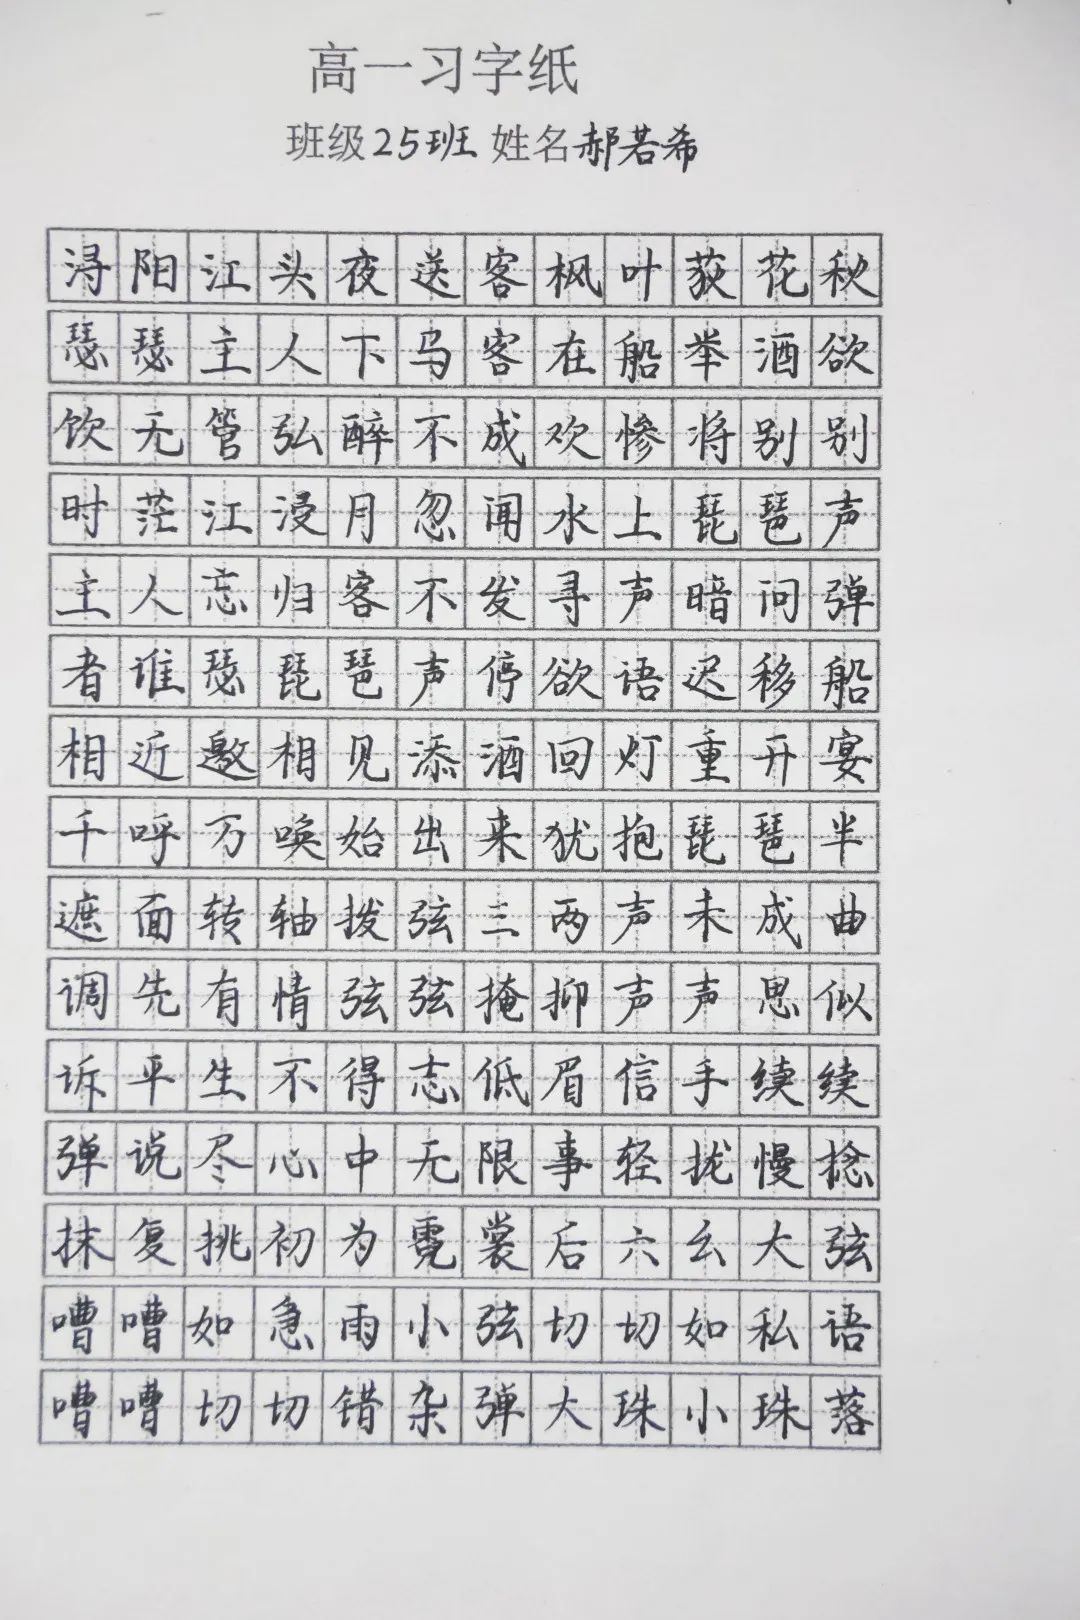 高一习字纸
班级25班 姓名郝若希
浔阳江头夜送客枫叶荻花秋
瑟瑟主人下马客在船举酒欲
饮无管弘醉不成欢惨将别别
时茫江浸月忽闻水上琵琶声
主人忘归客不发寻声暗问弹
者谁瑟琵琶声停欲语迟移船
相近邀相见添酒回灯重开宴
千呼万唤始出来犹抱琵琶半
遮面转轴拨弦三两声未成曲
调先有情弦弦掩抑声声思似
诉平生不得志低眉信手续续
弹说尽心中无限事轻拢慢捻
抹复挑初为霓裳后六幺大弦
嘈嘈如急雨小弦切切如私语
嘈嘈切切错杂弹大珠小珠落